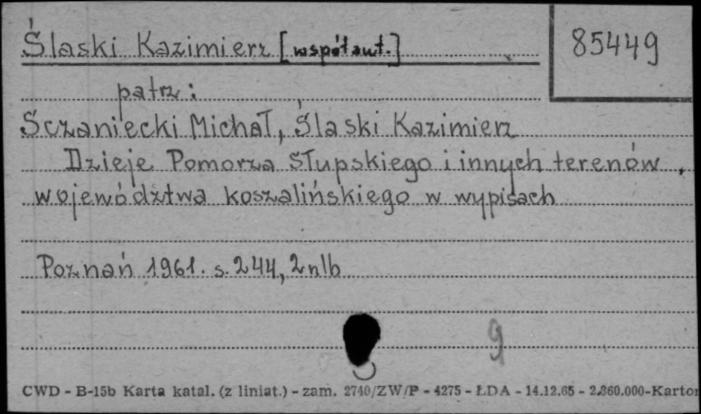 Ślaski Kazimierz [współaut.] 85449
patrz:
Sczaniecki Michał, Ślaski Kazimierz
Dzieje Pomorza Słupskiego i innych terenów
województwa koszalińskiego w wypisach
Poznań 1961. s. 244, 2 nlb
g
CWD - B-15b Karta katal. (z liniat.) - zam. 2740/ZW/P - 4275 - ŁDA - 14.12.65 - 2.360.000-Karton